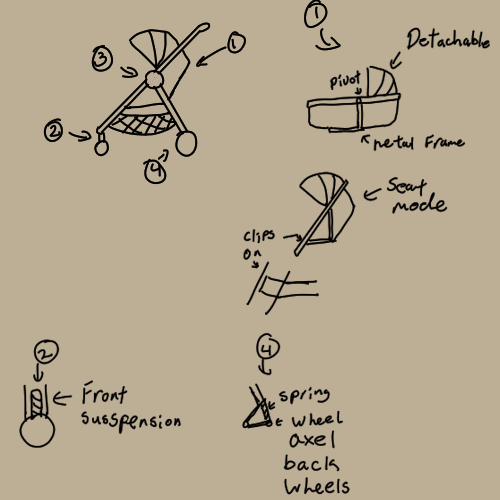 1
Detachable
3
1
pivot
2
4
metal Frame
Seat
mode
clips
on
2
4
Front
susspension
spring
wheel
axel
back
wheels